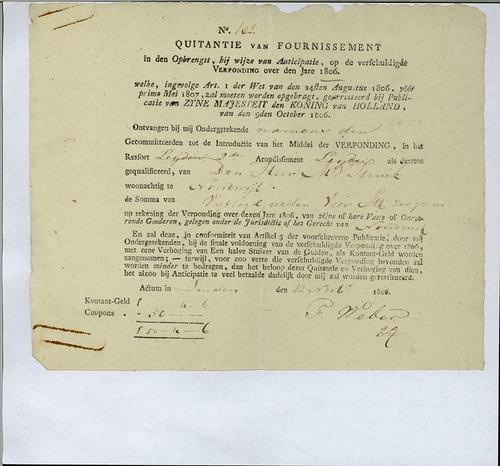 No. 102.
QUITANTIE VAN FOURNISSEMENT
in den Opbrengst, bij wijze van Anticipatie, op de verschuldigde
VERPONDING over den Jare 1806.
welke, ingevolge Art. 1 der Wet van den 24sten Augustus 1806. vóór
primo Mei 1807. zal moeten worden opgebragt, gearresteerd bij Publi-
catie van ZYNE MAJESTEIT den KONING van HOLLAND,
van den 9den October 1806.
Ontvangen bij mij Ondergetekende namens den
Gecommitteerden tot de Introductie van het Middel der VERPONDING, in het
Ressort Leyden Arondissement Leyden als daartoe
gequalificeerd, van Den Heer
woonachtig te
de Somma van Vier
op rekening der Verponding over dezen Jare 1806, van zijne of hare Vaste of Onroe-
rende Goederen, gelegen onder de Jurisdictie of het Gerecht van
En zal deze, in conformiteit van Artikel 3 der voorschrevene Publicatie, door mij
Ondergetekenden, bij de finale voldoening van de verschuldigde Verponding over 1806,
met eene Verhoging van Een halve Stuiver van de Gulden, als Kontant-Geld worden
aangenomen; — terwijl, voor zoo verre die verschuldigde Verponding bevonden zal
worden minder te bedragen, dan het beloop dezer Quitantie en Verhoging van dien,
het alzoo bij Anticipatie te veel betaalde dadelijk door mij zal worden gerestitueerd.
Actum in Leyden den 12 1806.
Kontant-Geld f 4 - 6
Coupons - 50 - -
f 50 - 4 - 6
F. Weber